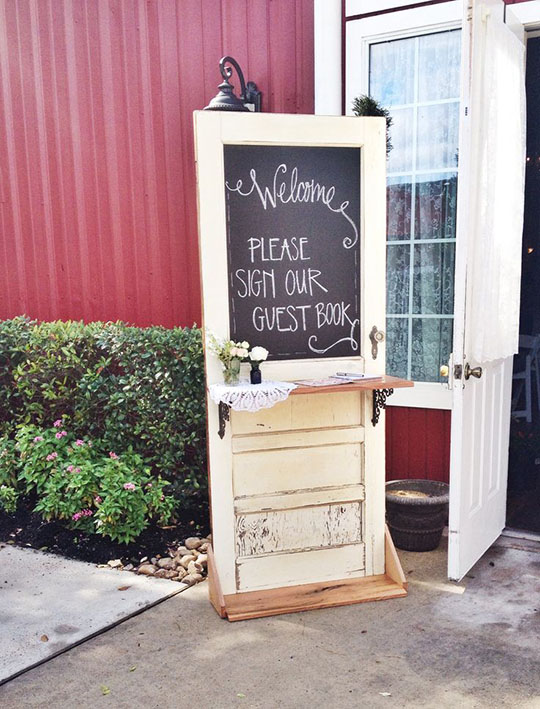 Welcome
PLEASE
SIGN OUR
GUEST BOOK